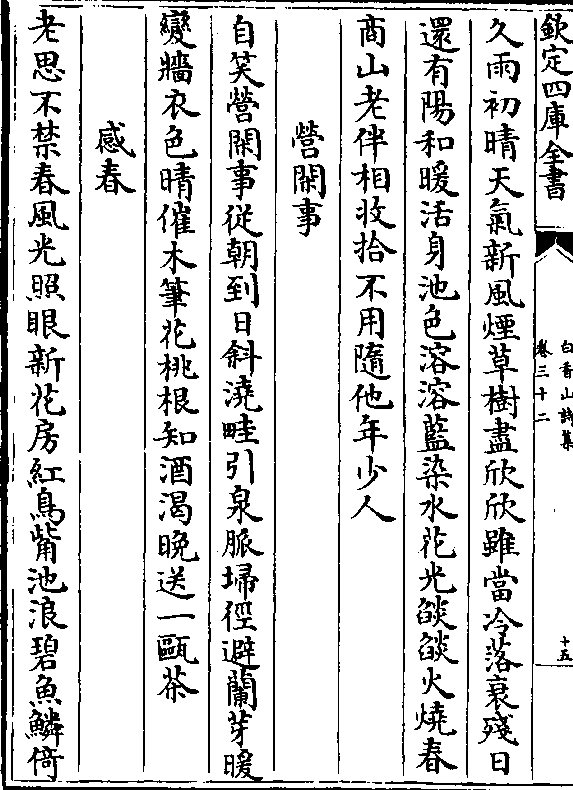 欽定四庫全書
白香山詩集
卷三十二
十五
久雨初晴天氣新風煙草樹盡欣欣雖當冷落衰殘日
還有陽和暖活身池色溶溶藍染水花光燄燄火燒春
商山老伴相收拾不用隨他年少人
營閑事
自笑營閑事從朝到日斜澆畦引泉脈埽徑避蘭芽暖
變牆衣色晴催木筆花桃根知酒渴晚送一甌茶
感春
老思不禁春風光照眼新花房紅鳥觜池浪碧魚鱗倚